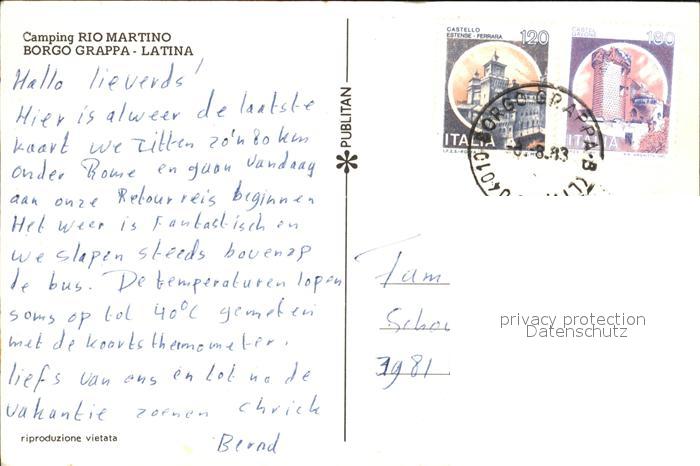 Camping RIO MARTINO
BORGO GRAPPA - LATINA
Hallo lieverds!
Hier is alweer de laatste
kaart we zitten zo'n 80 km
onder Rome en gaan vandaag
aan onze Retourreis beginnen
Het weer is Fantastisch en
we slapen steeds bovenop
de bus. De temperaturen lopen
soms op tot 40°C gemeten
met de koortsthermometer.
liefs van ons en tot na de
vakantie zoenen
Bernd
riproduzione vietata
PUBLITAN
CASTELLO
ESTENSE - FERRARA
120
ITALIA
180
ITALIA
04010 BORGO GRAPPA-B
.8.83
Fam
3981
privacy protection
Datenschutz